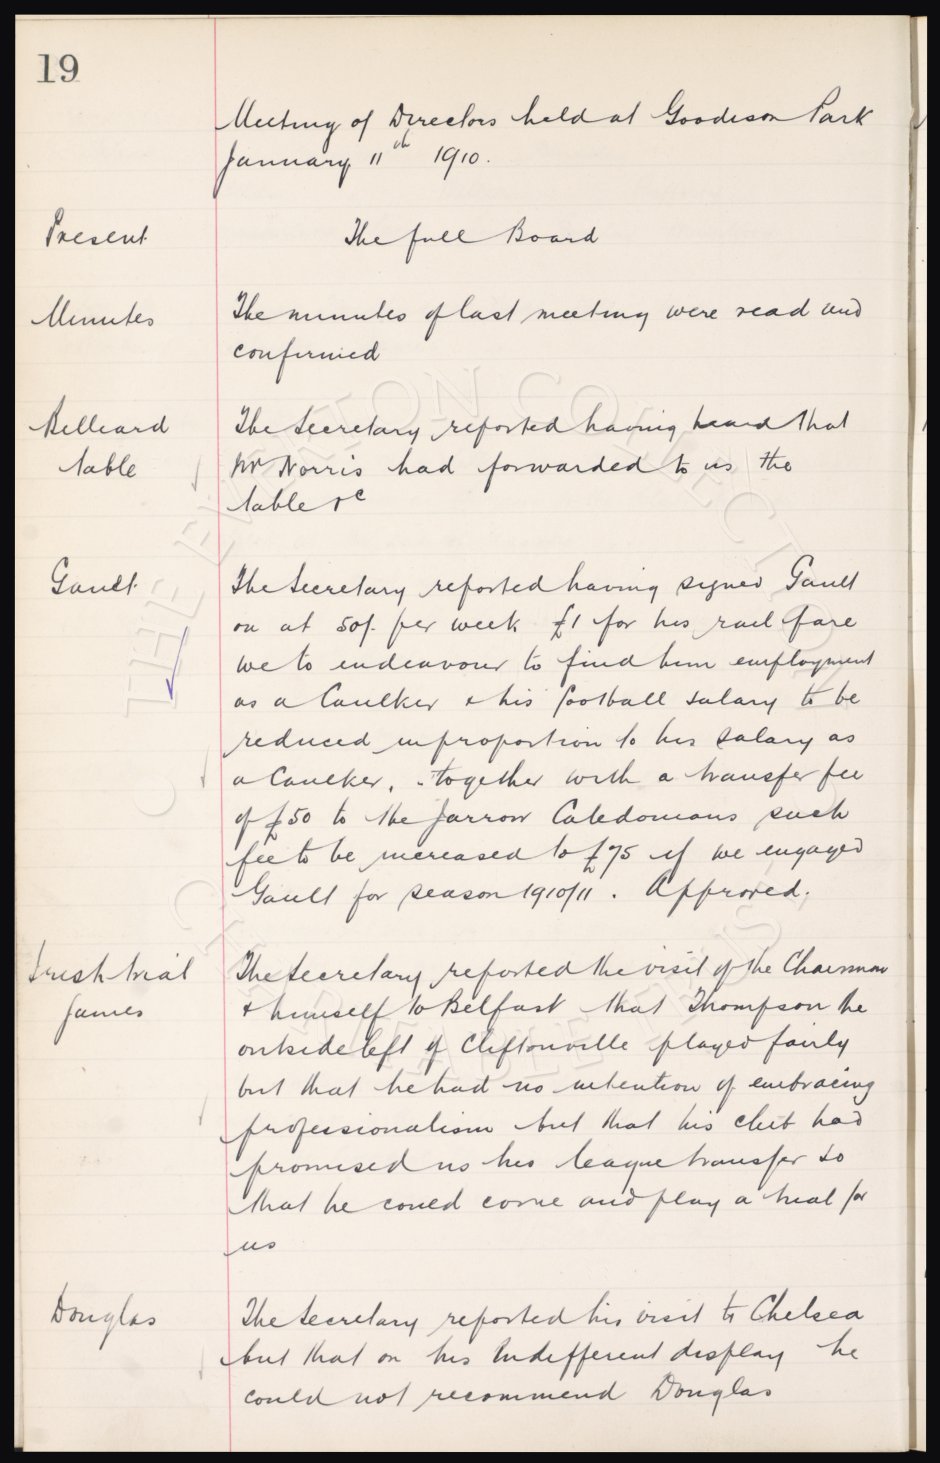 19
Meeting of Directors held at Goodison Park
January 11th 1910.
Present
The full Board
Minutes
The minutes of last meeting were read and
confirmed
Billiard
table
The Secretary reported having heard that
Mr Norris had forwarded to us the
table &c
Gault
The Secretary reported having signed Gault
on at 50/- per week £1 for his rail fare
we to endeavour to find him employment
as a Caulker & his football salary to be
reduced in proportion to his salary as
a Caulker, together with a transfer fee
of £50 to the Jarrow Caledonians such
fee to be increased to £75 if we engaged
Gault for season 1910/11. Approved.
Irish trial
games
The Secretary reported the visit of the Chairman
& himself to Belfast that Thompson the
outside left of Cliftonville played fairly
but that he had no intention of embracing
professionalism but that his club had
promised us his league transfer so
that he could come and play a trial for
us
Douglas
The Secretary reported his visit to Chelsea
but that on his indifferent display he
could not recommend Douglas